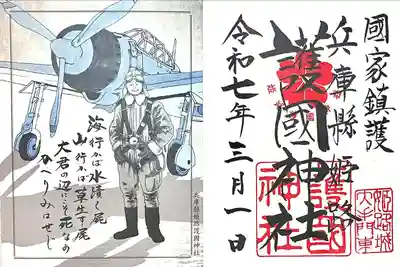 海行かば水漬く屍
山行かば草生す屍
大君の辺にこそ死なめ
かへりみはせじ
兵庫縣姫路護國神社
國家鎮護
兵庫縣姫路
護國神社
令和七年三月一日
護國神社
姫路城
大手門東